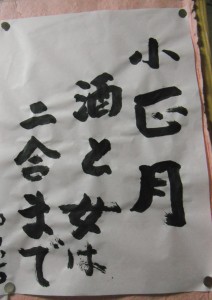 小正月
酒と女は
二合まで